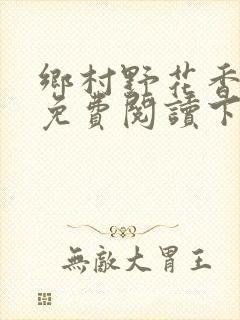 鄉村野花香
免費閱讀下
無敵大胃王